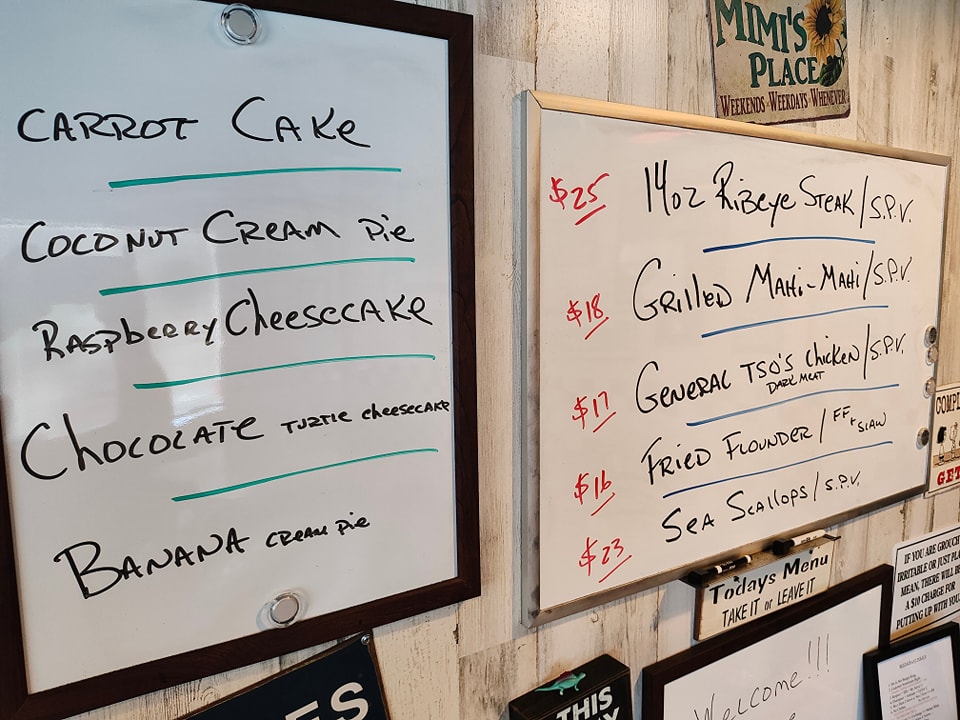 CARROT CAKE
COCONUT CREAM Pie
RASpbeRRy CheesecAKe
CHOCOLATE TURTLE cheesecake
BANANA CREAM Pie
MIMI'S
PLACE
WEEKENDS • WEEKDAYS • WHENEVER
$25 14oz RibEye STEAK/S.P.V.
$18 GRillED MAHi-MAHi/S.P.V.
$17 GENERAL TSO'S Chicken/S.P.V.
DARK MEAT
$16 FRiED FLOUNDER/FF + SLAW
$23 SEA SCALLOPS/S.P.V.
Todays Menu
TAKE IT or LEAVE IT
COMPL
GET
IF YOU ARE GROUCH
IRRITABLE OR JUST PLA
MEAN, THERE WILL BE
A $10 CHARGE FOR
PUTTING UP WITH YOU
Welcome!!!
THIS
ES